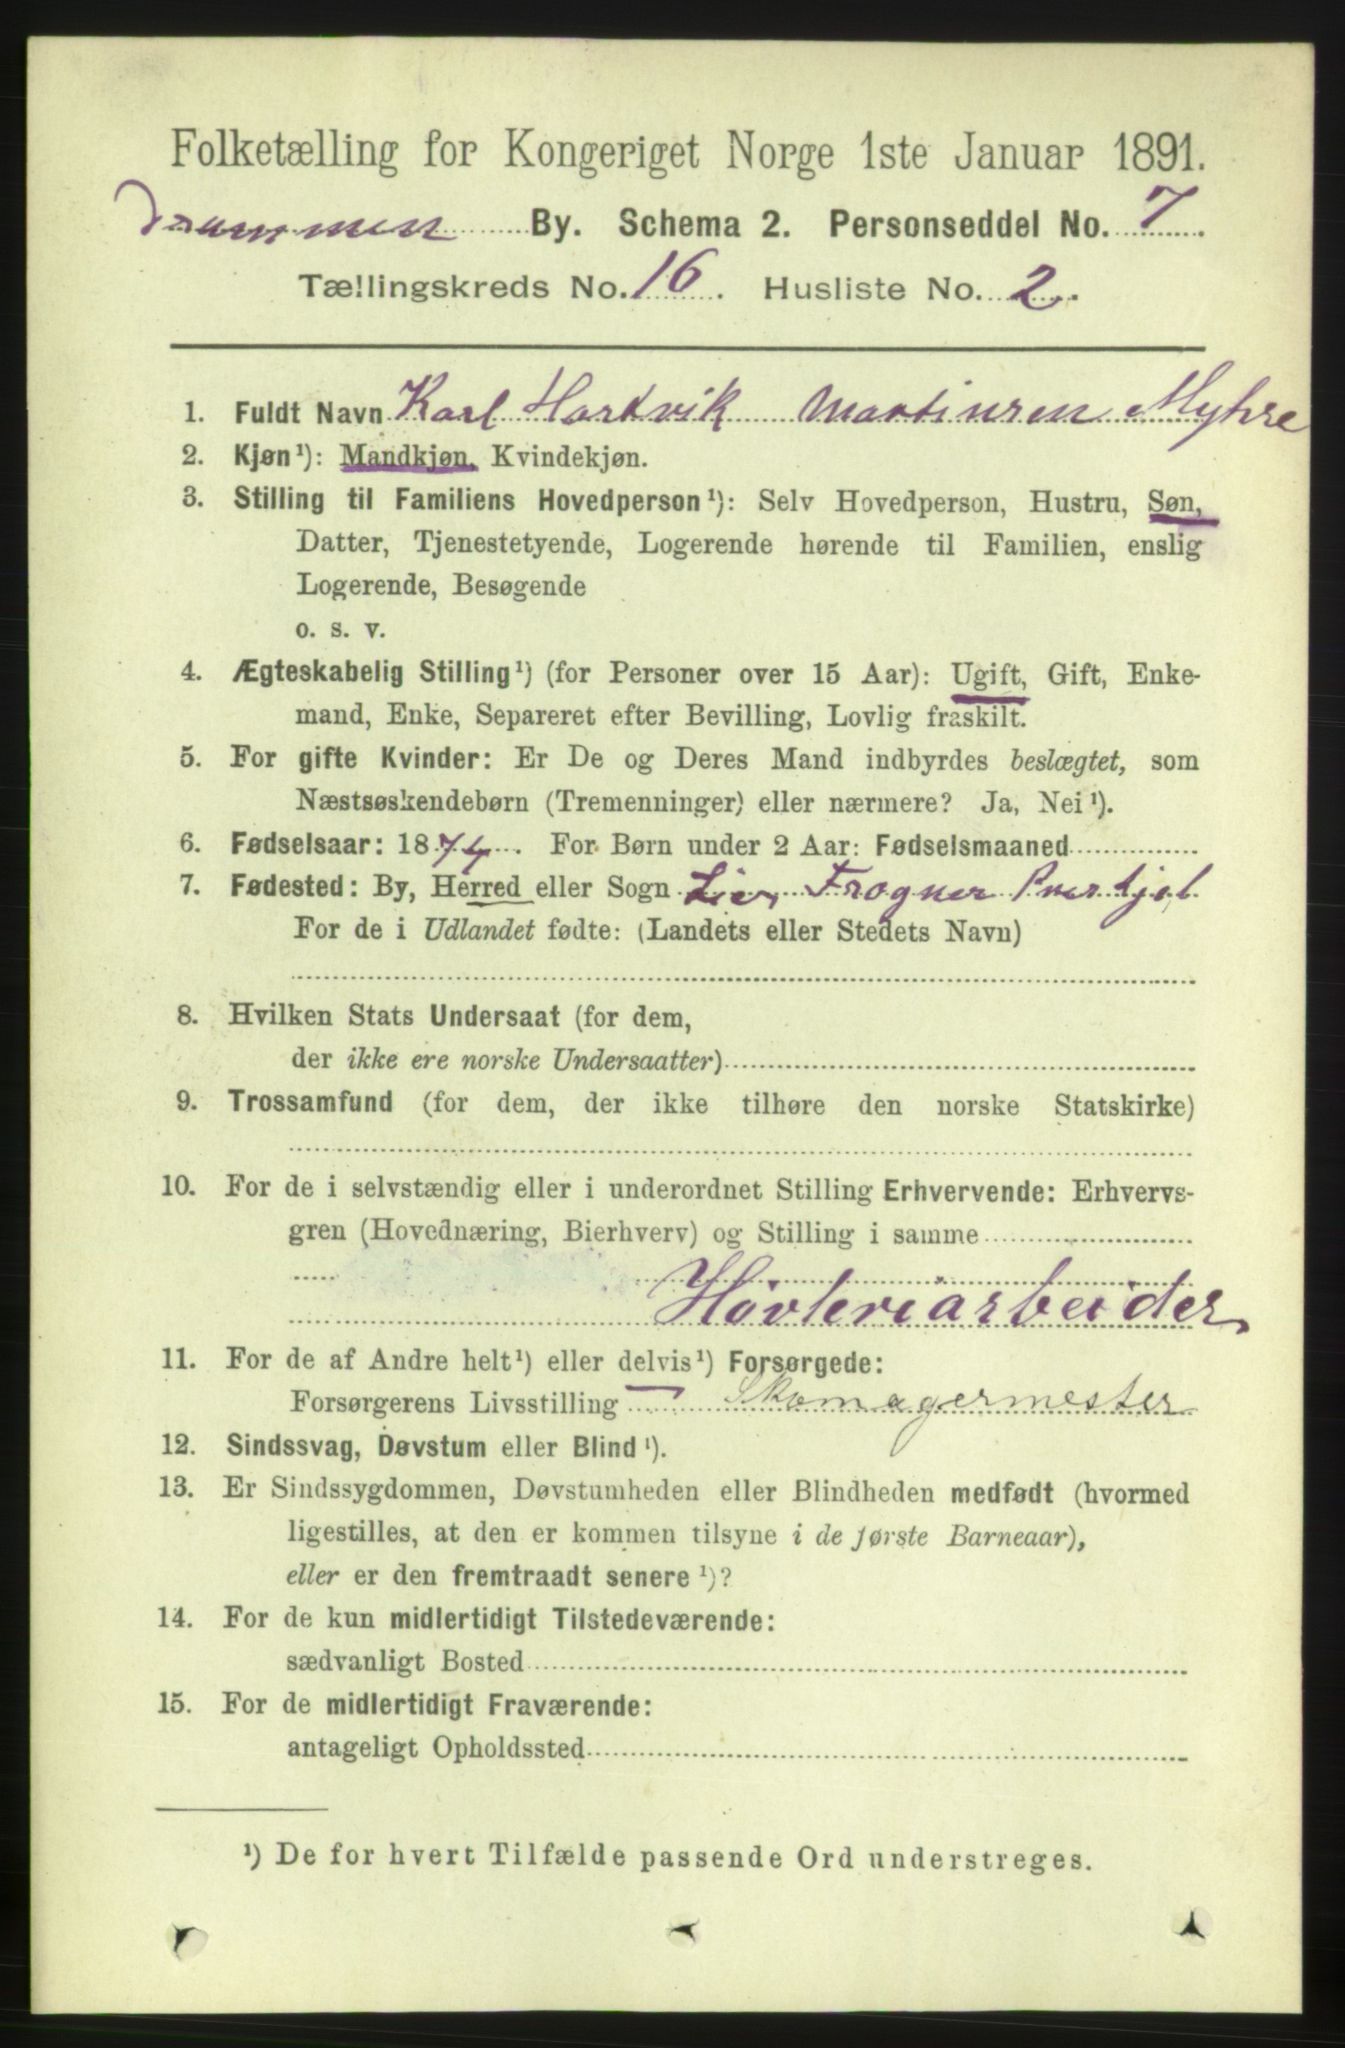 Folketælling for Kongeriget Norge 1ste Januar 1891.
Drammen By. Schema 2. Personseddel No. 7.
Tællingskreds No. 16. Husliste No. 2.
1. Fuldt Navn Karl Hartvik Martinsen Myhre
2. Kjøn¹): Mandkjøn, Kvindekjøn.
3. Stilling til Familiens Hovedperson¹): Selv Hovedperson, Hustru, Søn,
Datter, Tjenestetyende, Logerende hørende til Familien, enslig
Logerende, Besøgende
o. s. v.
4. Ægteskabelig Stilling¹) (for Personer over 15 Aar): Ugift, Gift, Enke-
mand, Enke, Separeret efter Bevilling, Lovlig fraskilt.
5. For gifte Kvinder: Er De og Deres Mand indbyrdes beslægtet, som
Næstsøskendebørn (Tremenninger) eller nærmere? Ja, Nei¹).
6. Fødselsaar: 1874. For Børn under 2 Aar: Fødselsmaaned
7. Fødested: By, Herred eller Sogn Lier, Frogner
For de i Udlandet fødte: (Landets eller Stedets Navn)
8. Hvilken Stats Undersaat (for dem,
der ikke ere norske Undersaatter)
9. Trossamfund (for dem, der ikke tilhøre den norske Statskirke)
10. For de i selvstændig eller i underordnet Stilling Erhvervende: Erhvervs-
gren (Hovednæring, Bierhverv) og Stilling i samme
Høvleriarbeider
11. For de af Andre helt¹) eller delvis¹) Forsørgede:
Forsørgerens Livsstilling Skomagermester
12. Sindssvag, Døvstum eller Blind¹).
13. Er Sindssygdommen, Døvstumheden eller Blindheden medfødt (hvormed
ligestilles, at den er kommen tilsyne i de første Barneaar),
eller er den fremtraadt senere¹)?
14. For de kun midlertidigt Tilstedeværende:
sædvanligt Bosted
15. For de midlertidigt Fraværende:
antageligt Opholdssted
¹) De for hvert Tilfælde passende Ord understreges.